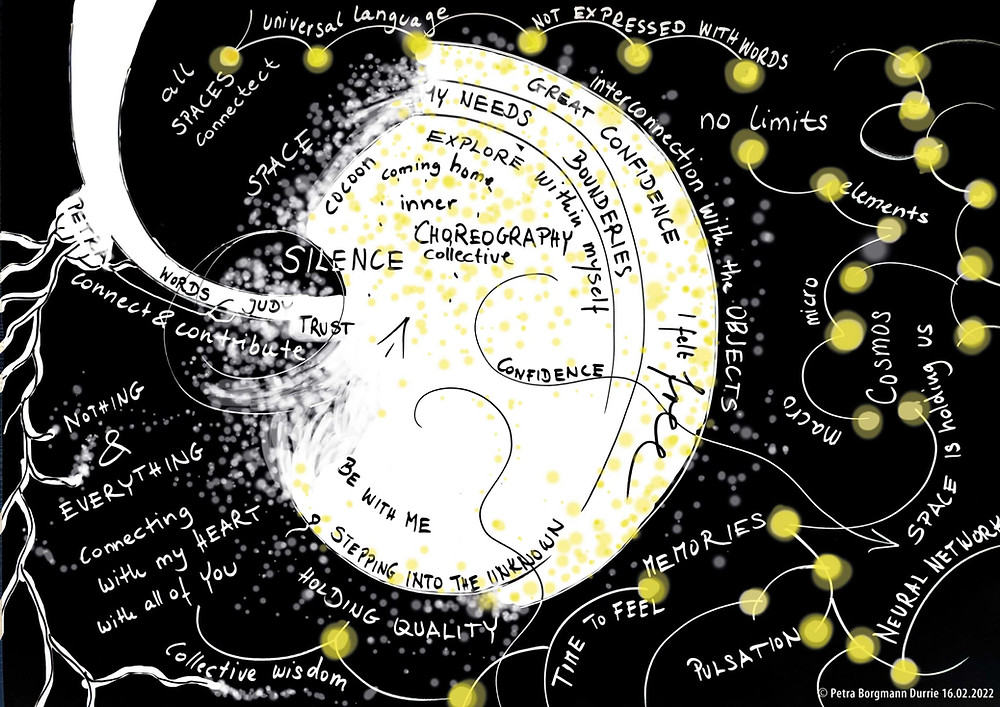 universal language
NOT EXPRESSED WITH WORDS
all
SPACES
connectect
SPACE
interconnection with the OBJECTS
no limits
elements
micro
macro
COSMOS
SPACE IS holding us
NEURAL NETWORK
MY NEEDS
GREAT CONFIDENCE
BOUNDERIES
EXPLORE within myself
cocoon
coming home
inner
CHOREOGRAPHY
collective
SILENCE
PETRA
WORDS
TRUST
connect & contribute
CONFIDENCE
I felt free
NOTHING
&
EVERYTHING
connecting
with my HEART
with all of YOU
BE WITH ME
STEPPING INTO THE UNKNOWN
HOLDING QUALITY
Collective wisdom
MEMORIES
TIME TO FEEL
PULSATION
© Petra Borgmann Durrie 16.02.2022